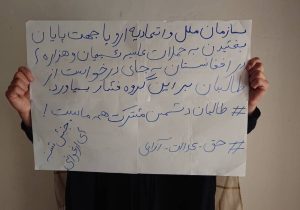 سازمان ملل و اتحادیه اروپا جهت پایان
بخشیدن به حملات علیه شیعیان و هزاره
در افغانستان بجای درخواست از
طالبان بر این گروه فشار بیاورد.
# طالبان دشمن مشترک همه ماست!
# حق - عدالت - آزادی
بخش